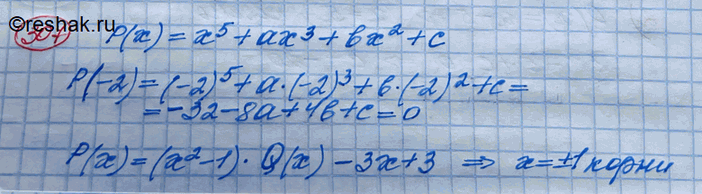 ©reshak.ru
307 P(x) = x⁵ + ax³ + bx² + c
P(-2) = (-2)⁵ + a·(-2)³ + b·(-2)² + c =
= -32 - 8a + 4b + c = 0
P(x) = (x² - 1) · Q(x) - 3x + 3 ⇒ x = ±1 корни